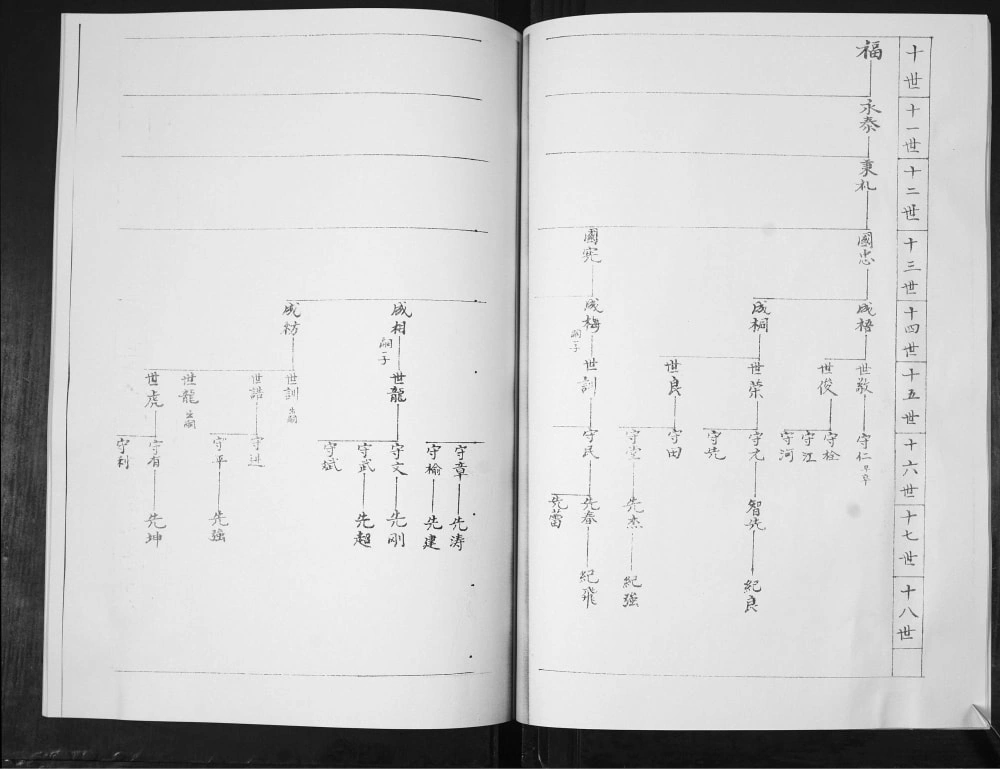 十世
十一世
十二世
十三世
十四世
十五世
十六世
十七世
十八世
福
永泰
秉礼
國忠
國宪
成梧
成桐
成梅 嗣一子
世敬
世俊
世荣
世良
世訓
守仁 早卒
守栓
守江
守河
守元
守先
守田
守堂
守民
智先
先杰
先春
先蕾
紀良
紀强
紀飛
成相 嗣一子
成紡
世龍
世訓 出嗣
世誥
世龍 出嗣
世虎
守章
守榆
守文
守武
守斌
守进
守平
守有
守利
先涛
先建
先刚
先超
先强
先坤